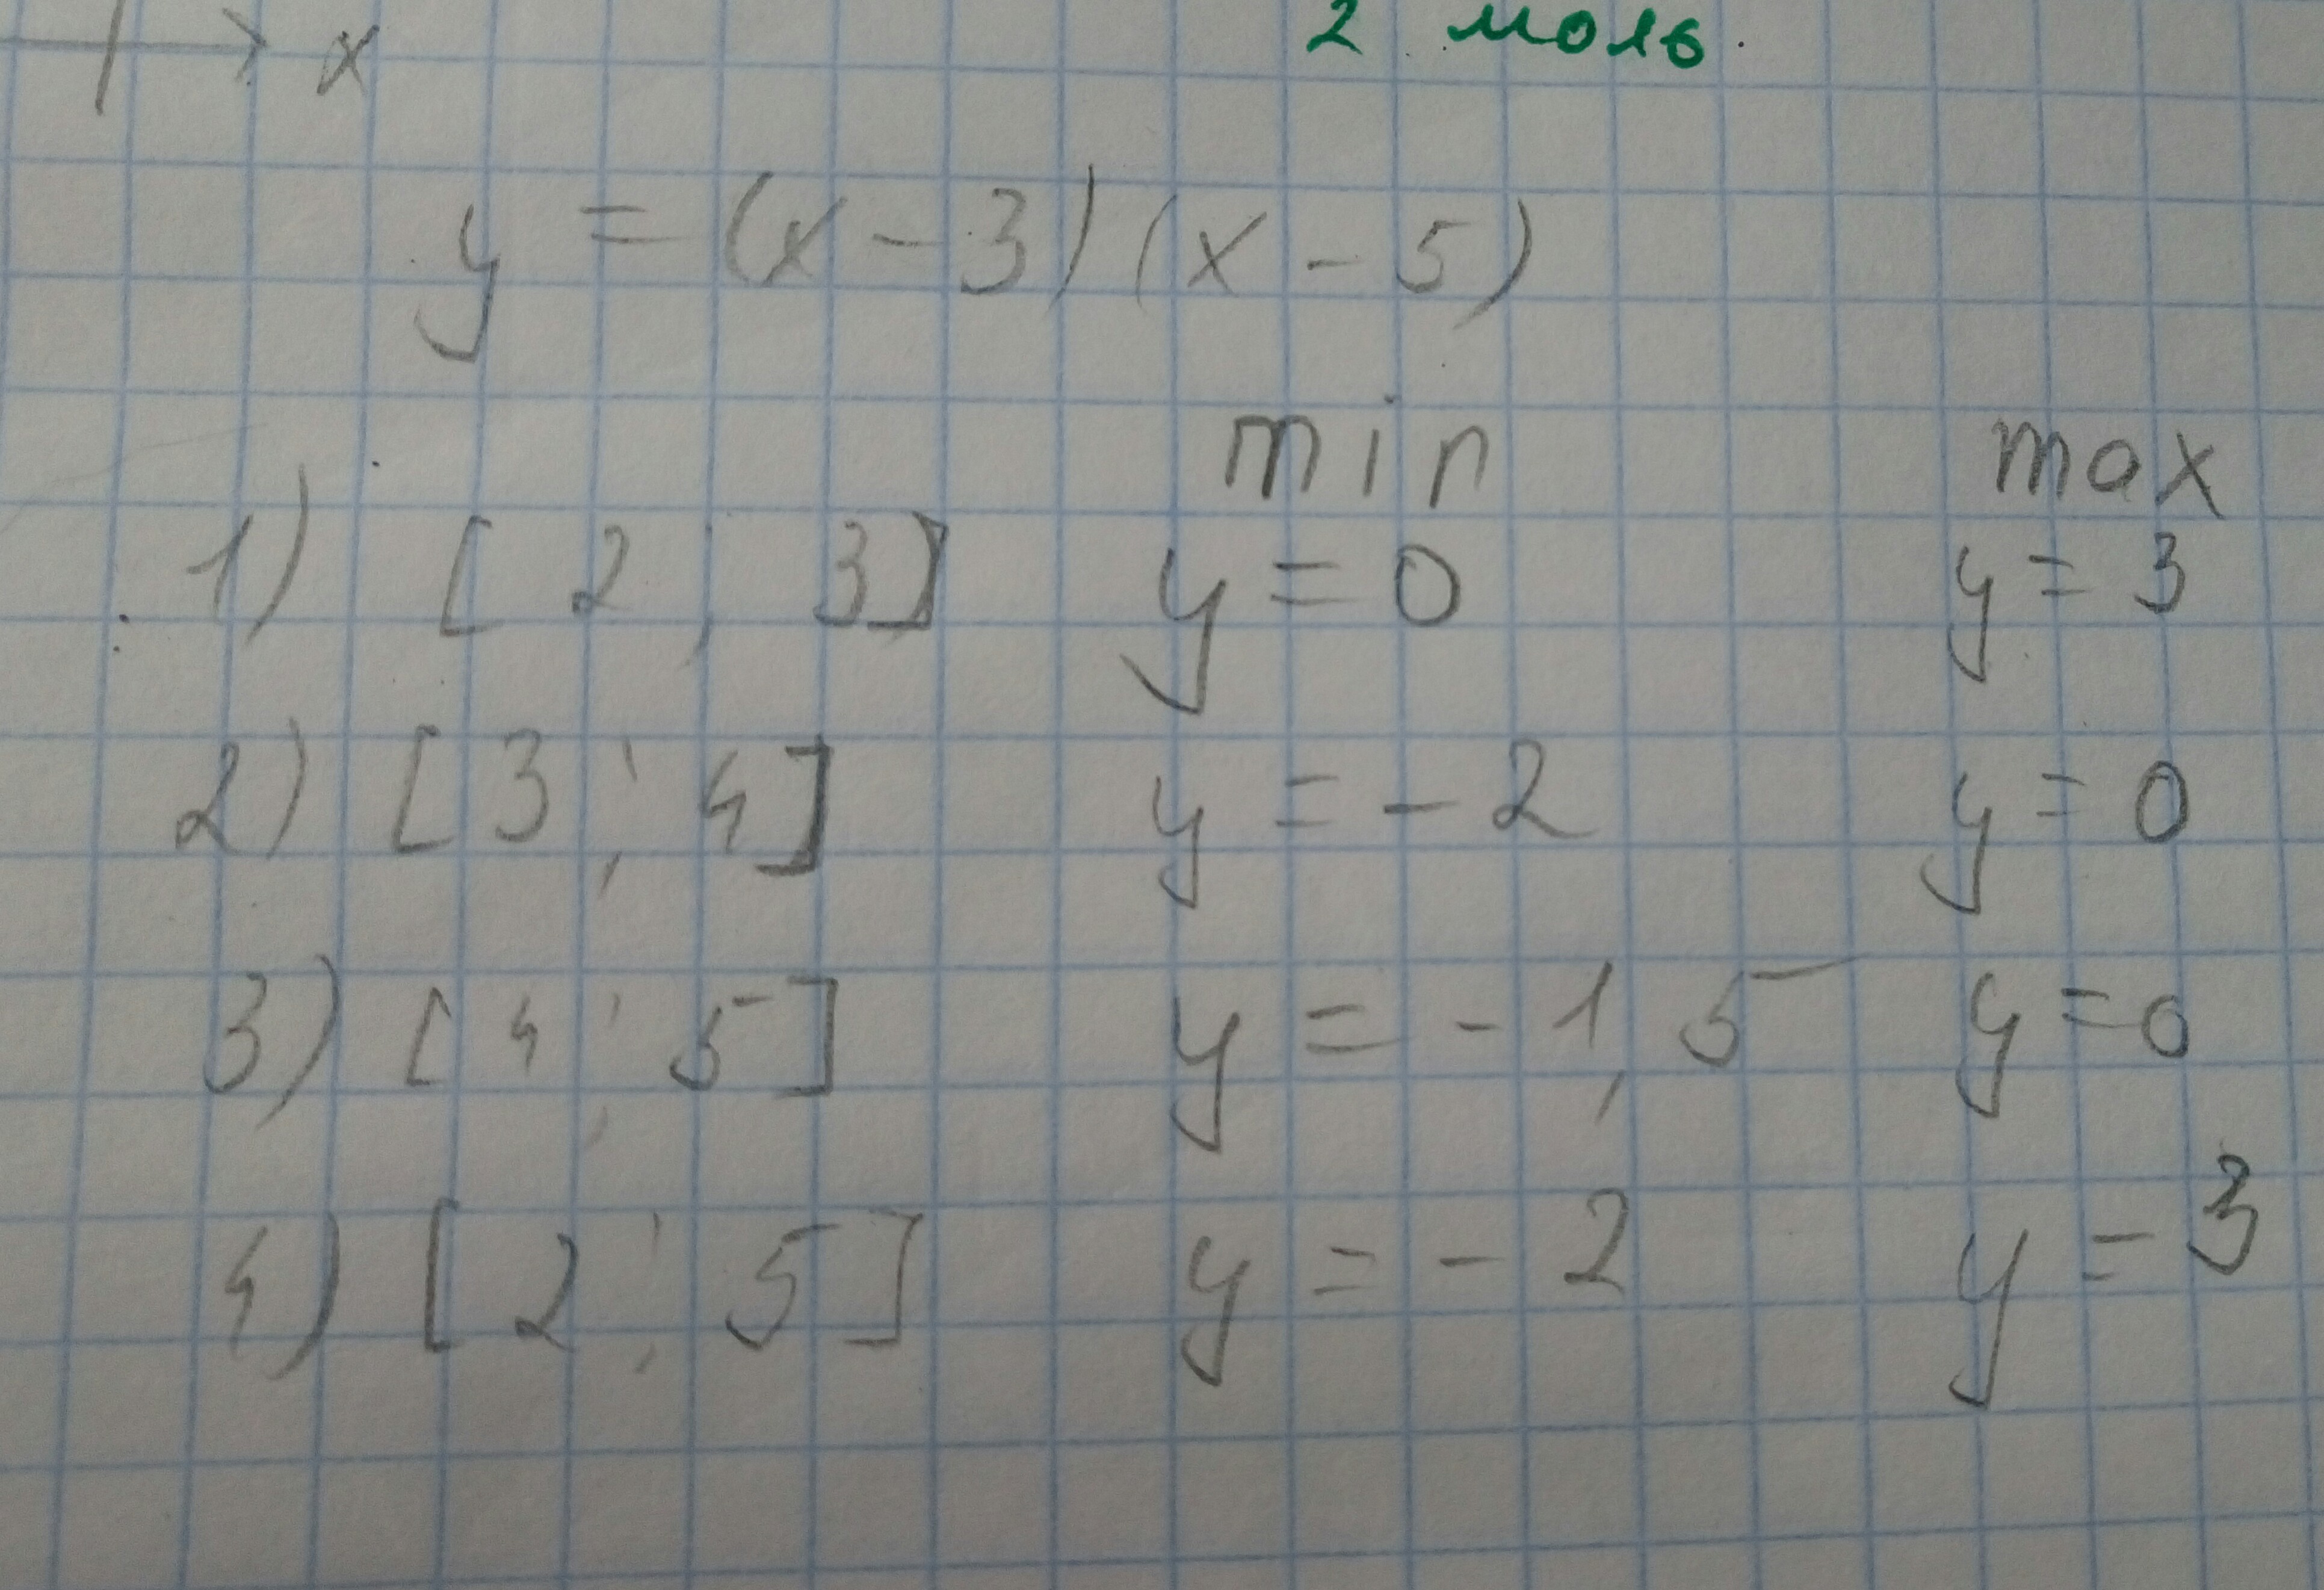 > x
2 моль
y = (x - 3) (x - 5)
min max
1) [2; 3] y = 0 y = 3
2) [3; 4] y = - 2 y = 0
3) [4; 5] y = - 1,5 y = 0
4) [2; 5] y = - 2 y = 3